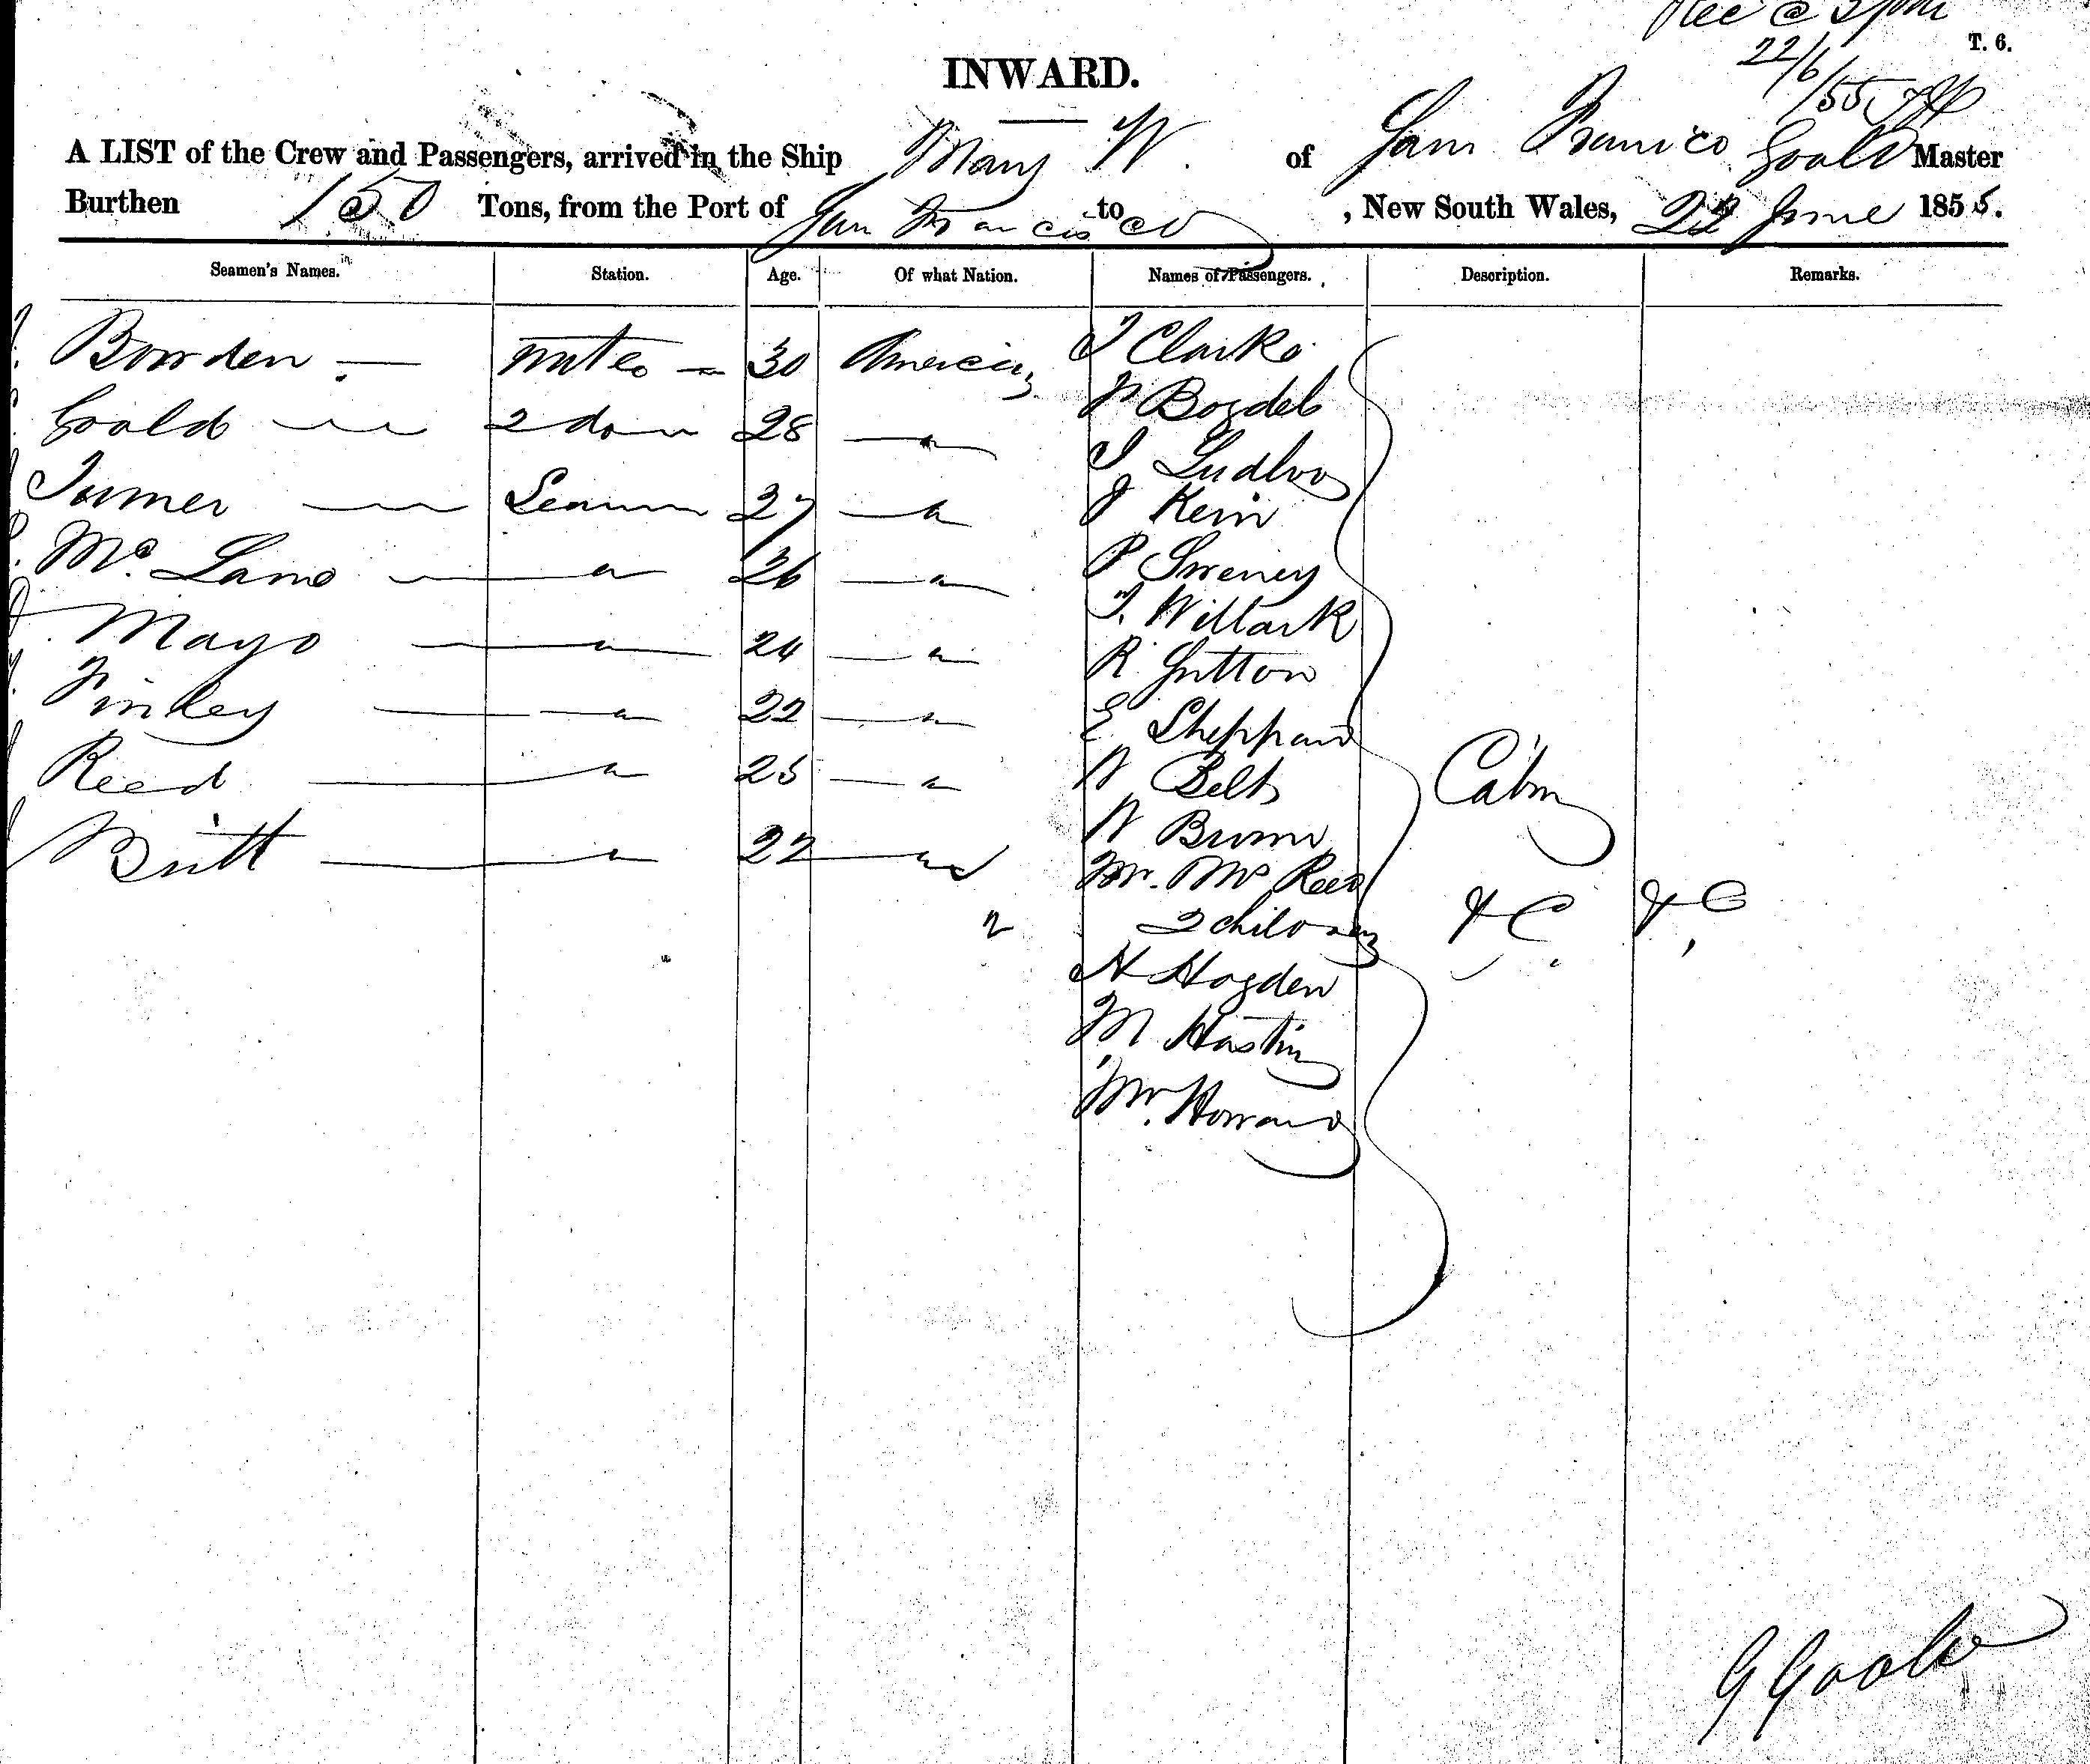 Rec @ 3 pm
T. 6.
22/6/55
INWARD.
A LIST of the Crew and Passengers, arrived in the Ship Mary W. of San Francico Goald Master
Burthen 150 Tons, from the Port of San Francisco to , New South Wales, 22 June 1855.
Seamen's Names. Station. Age. Of what Nation. Names of Passengers. Description. Remarks.
Bowden — mate 30 America T Clarke
Goald 2 do 28 —"— Bogdel
J Ludlow
Turner Seaman 27 —"— J Kein
Mc. Lane —"— 26 —"— P Sweney
T. Willark
Mayo —"— 24 —"— R Sutton
Finley —"— 22 —"— E Sheppard
Reed —"— 25 —"— W Belt Cabin
W Brown
Britt —"— 22 —"— Mr. Ms Reed
2 children &C &C
H Hogden
M Hastin
Mr. Howard
G Goald